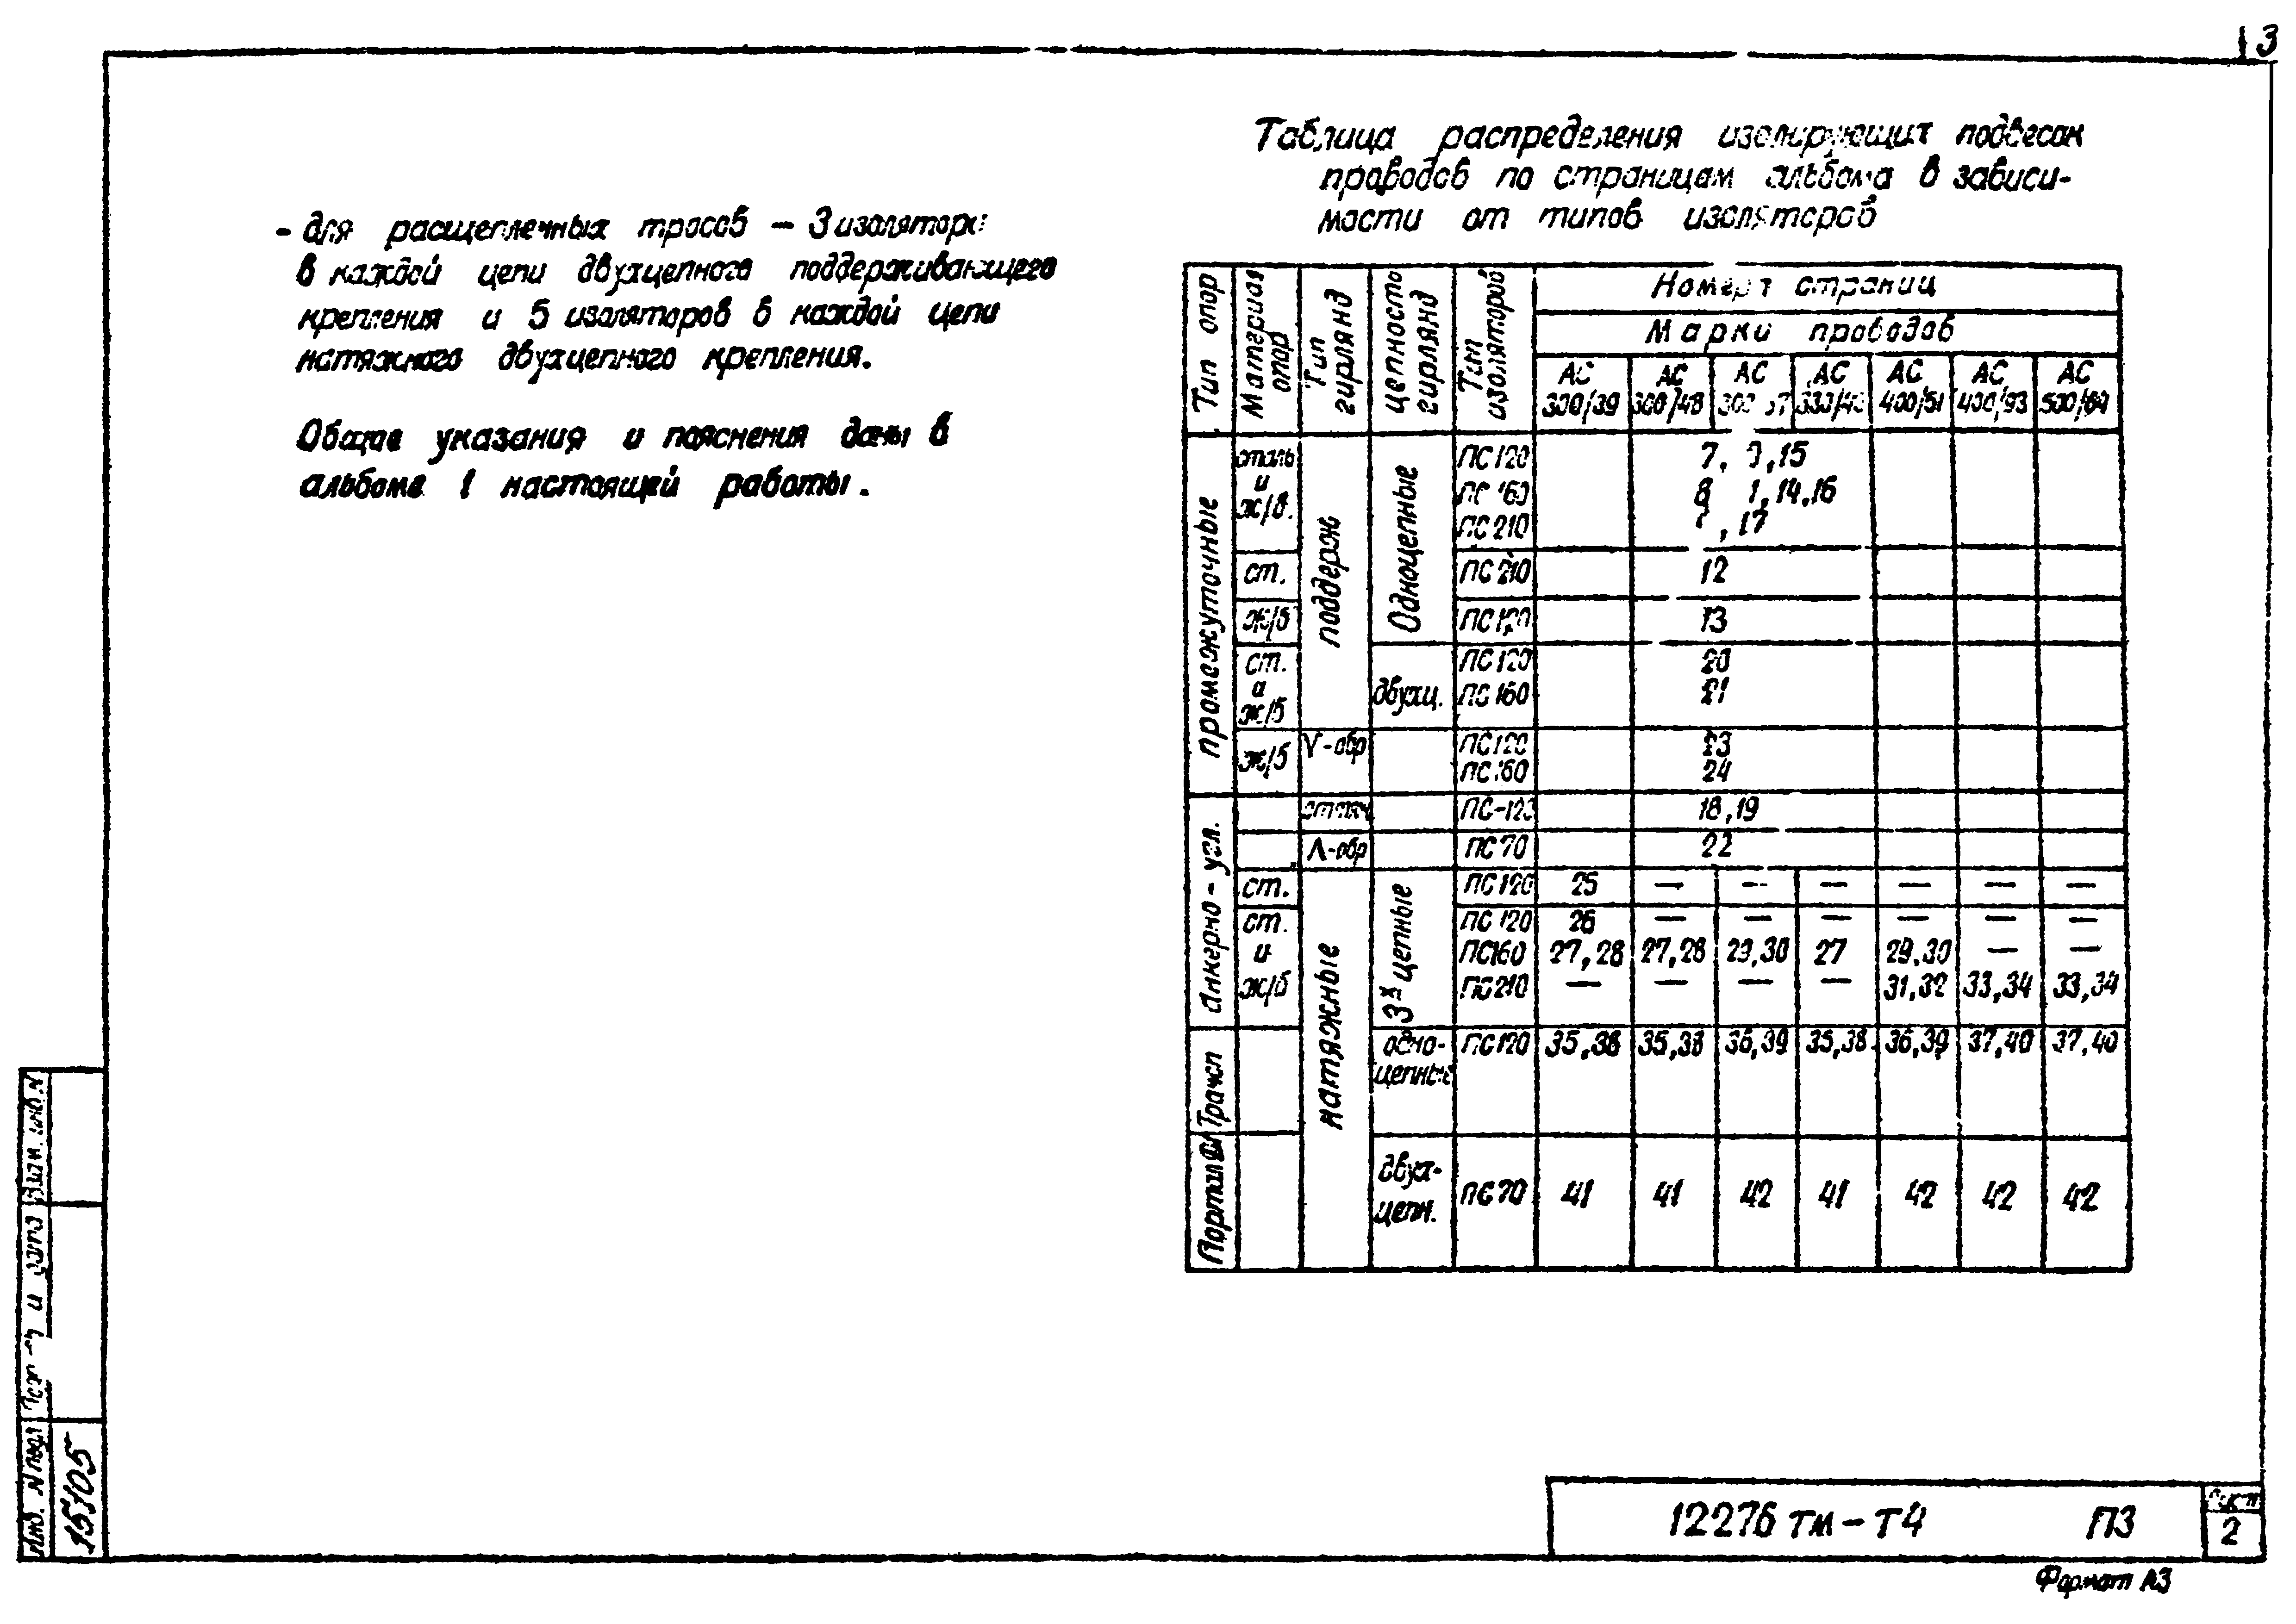 3
- для расщепленных тросов - 3 изолятора
в каждой цепи двухцепного поддерживающего
крепления и 5 изоляторов в каждой цепи
натяжного двухцепного крепления.
Общие указания и пояснения даны в
альбоме 1 настоящей работы.
Таблица распределения изолирующих подвесок
проводов по страницам альбома в зависи-
мости от типов изоляторов
Тип опор
Материал опор
Тип гирлянд
цепность гирлянд
Тип изоляторов
Номера страниц
Марки проводов
АС 300/39
АС 300/48
АС
АС
АС 400/51
АС 400/93
АС 500/64
промежуточные
сталь и ж/б.
поддерж
Одноцепные
ПС 120 7, 15
ПС 160 8 14,16
ПС 210 , 17
ст. ПС 210 12
ж/б ПС 120 13
ст. и ж/б двухц. ПС 120 20
ПС 160 21
ж/б V-обр ПС 120 23
ПС 160 24
Анкерно-угл.
оттяж ПС-120 18,19
Λ-обр ПС 70 22
натяжные
3х цепные
ст. ПС 120 25 — — — — — —
ст. и ж/б ПС 120 26 — — — — — —
ПС160 27,28 27,28 29,30 27 29,30 — —
ПС 210 — — — — 31,32 33,34 33,34
Трансп
одно-
цепные
ПС120 35,38 35,38 36,39 35,38 36,39 37,40 37,40
Порталы
двух-
цепн.
ПС 70 41 41 42 41 42 42 42
Взам. инв. N
и дата
Инв. N подл
15105
12276 тм-т4 ПЗ
Лист
2
Формат А3